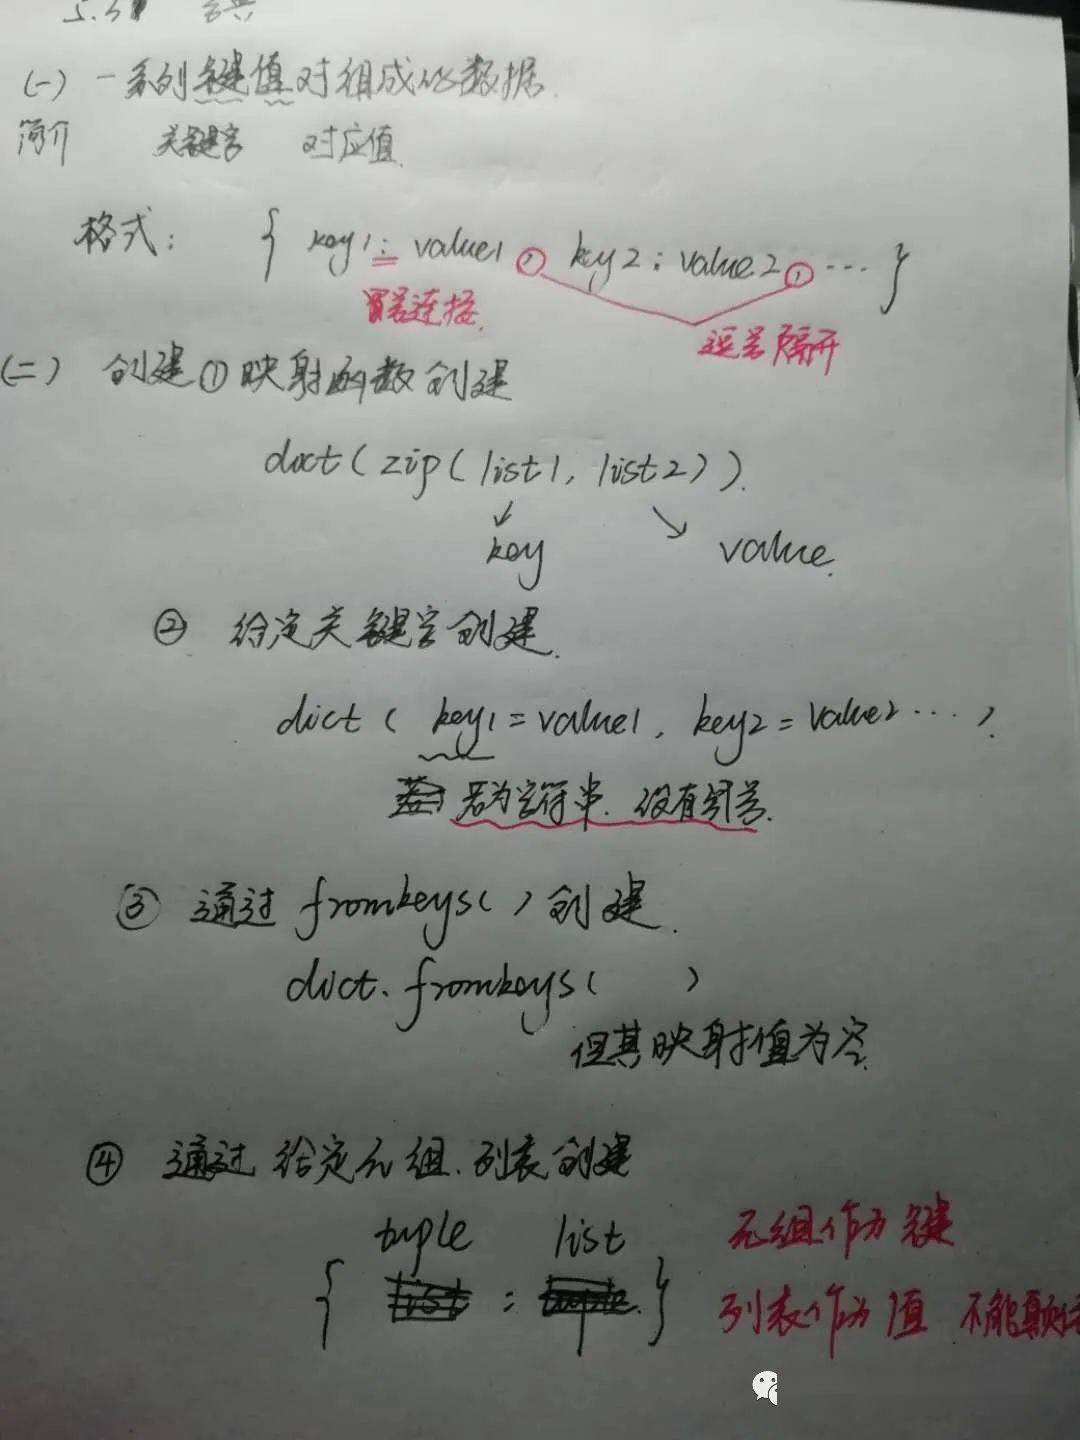 (一) 一系列键值对组成的数据.
简介 关键字 对应值.
格式: { key1: value1, key2: value2, ... }
冒号连接.
逗号隔开
(二) 创建 ① 映射函数创建
dict(zip(list1, list2)).
key value.
② 给定关键字创建.
dict( key1=value1, key2=value2 ... ).
若为字符串. 没有引号.
③ 通过 fromkeys( ) 创建.
dict. fromkeys( )
但其映射值为空.
④ 通过给定元组. 列表创建
tuple list 元组作为键
{ : } 列表作为值 不能颠